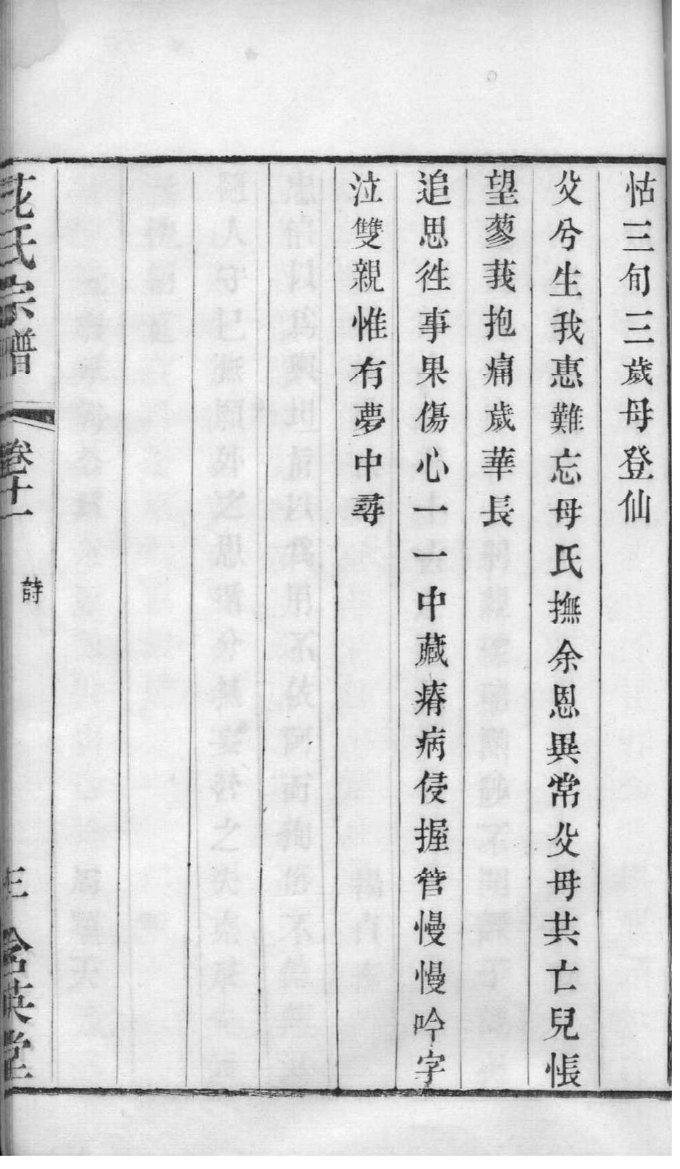 怙三旬三歲母登仙
父兮生我惠難忘母氏撫余恩異常父母共亡兒悵
望蓼莪抱痛歲華長
追思徃事果傷心一一中藏瘠病侵握管慢慢吟字
泣雙親惟有夢中尋
氏宗譜
卷十一
詩
英堂